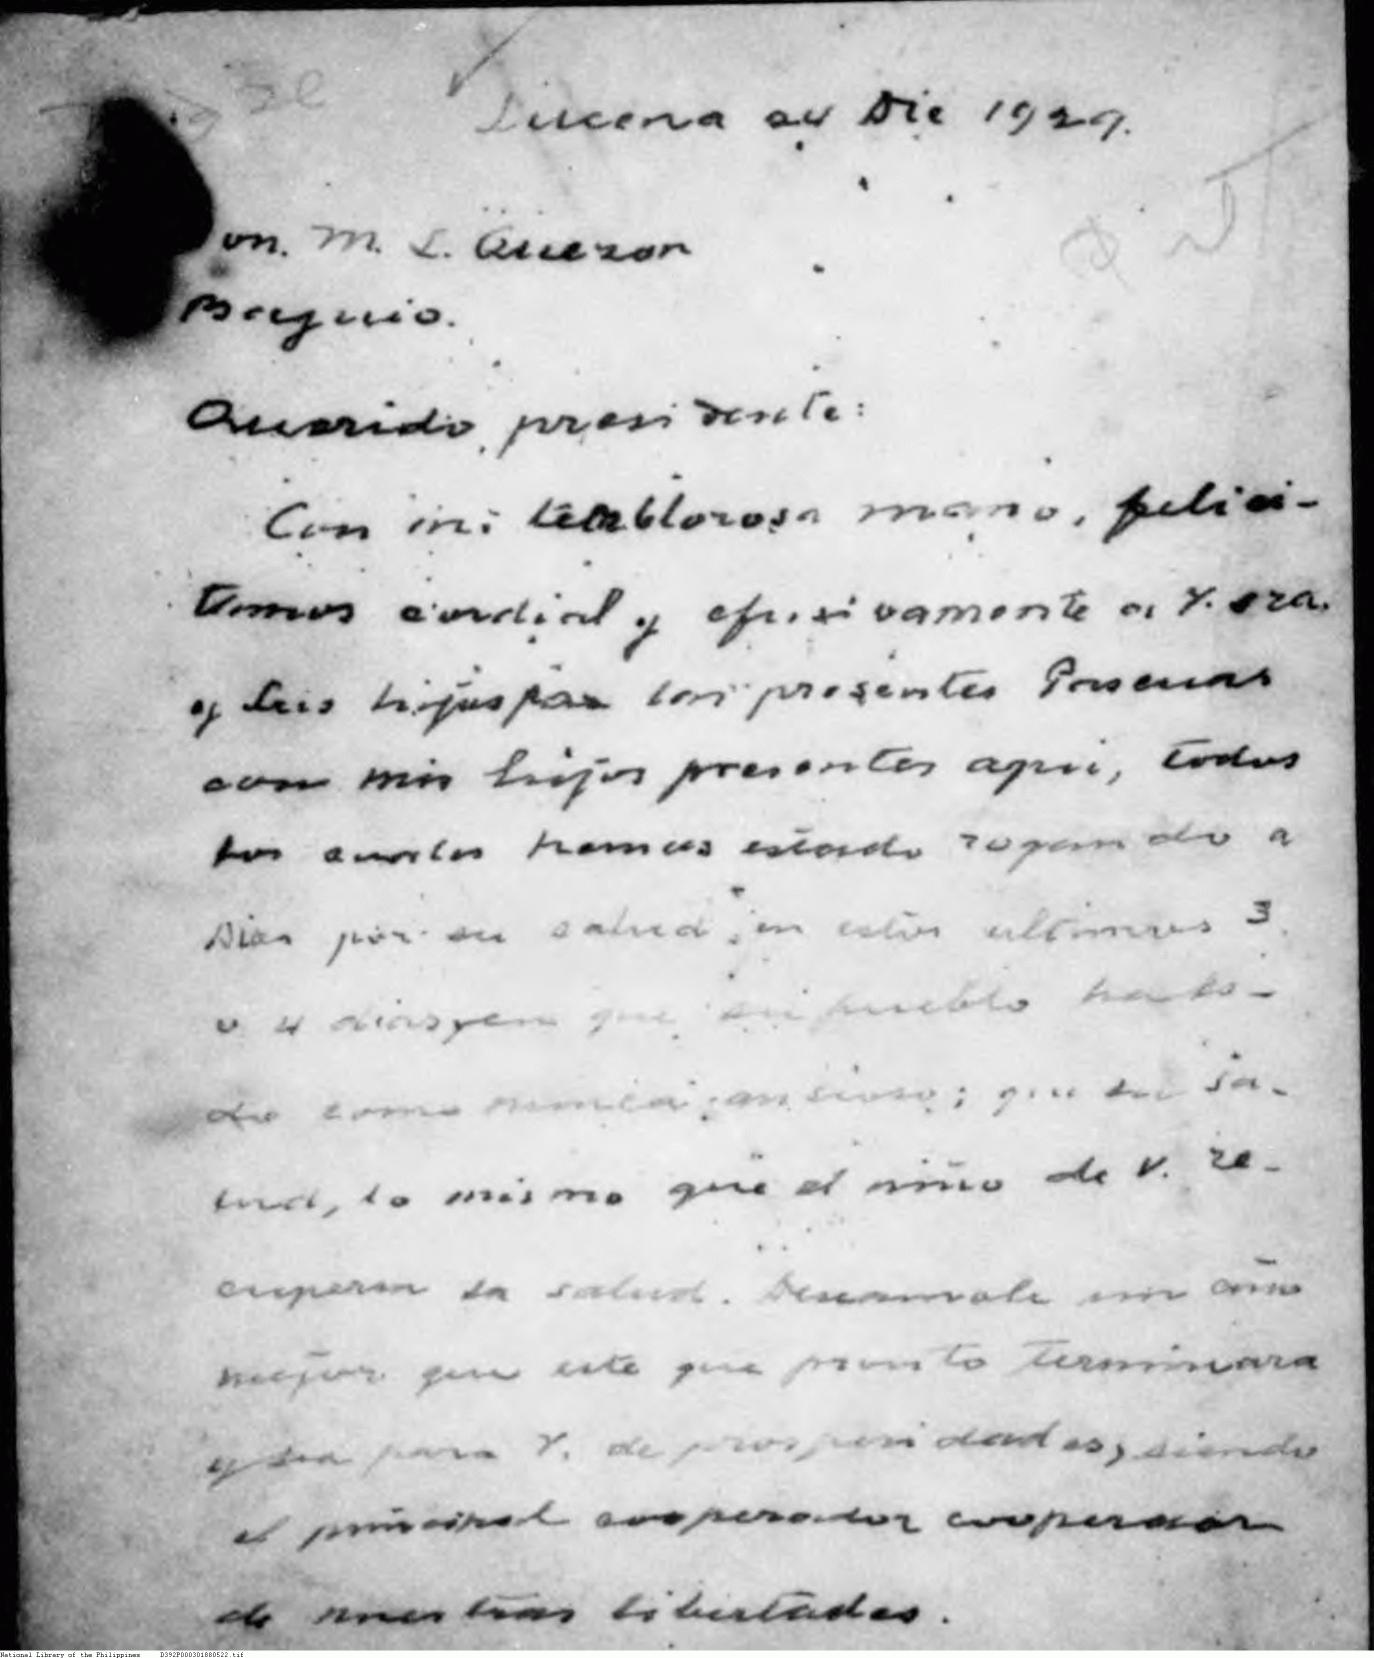 Lucena 24 Dic 1929.
on. M. L. Quezon
Baguio.
Querido presidente:
Con mi temblorosa mano, felici-
tamos cordial y efusivamente a V. sra.
y sus hijos por las presentes Pascuas
con mis hijos presentes aqui, todos
los cuales hemos estado rogando a
Dios por su salud, en estos ultimos 3
o 4 dias, en que su pueblo ha es-
do como nunca ansioso; que su sa-
lud, lo mismo que el niño de V. re-
cupera sa salud. Deseamole un año
mejor que este que pronto terminara
y sea para V. de prosperidades, siendo
el principal cooperador cooperador
de nuestras libertades.
National Library of the Philippines D392P000301880522.tif